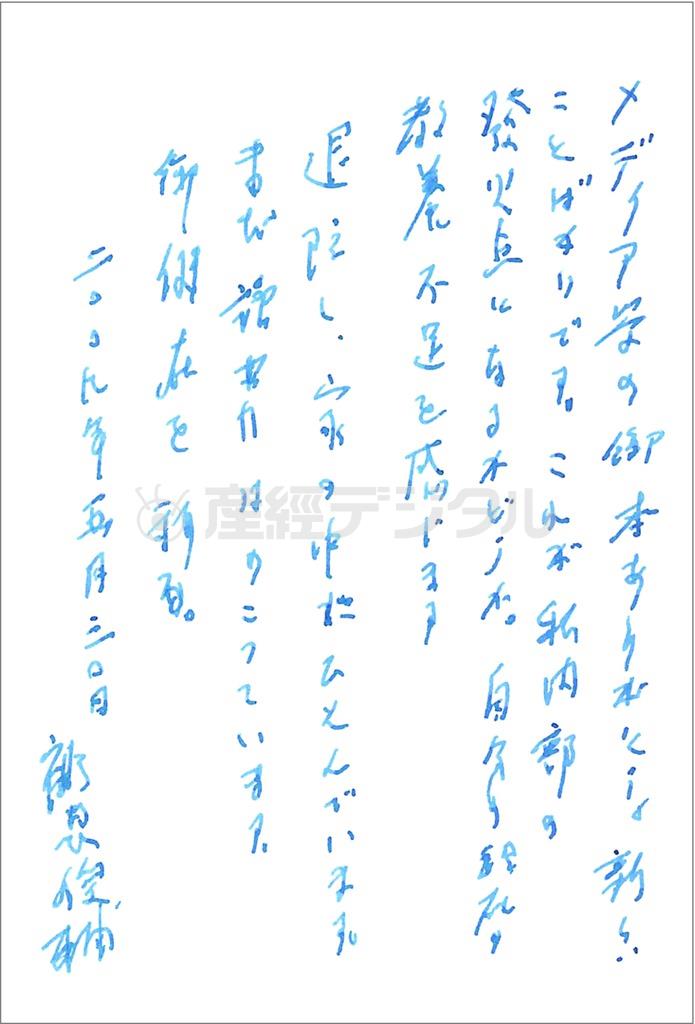 メディア学の御本ありがとう。新らしい
ことばかりです。これが私内部の
発火点になるかどうか。自分の経歴の
教養不足を感じます
退院し、家の中にひそんでいます。
まだ読書力はのこっています。
御健在を祈る。
二〇〇九年五月三〇日
鶴見俊輔
産経デジタル